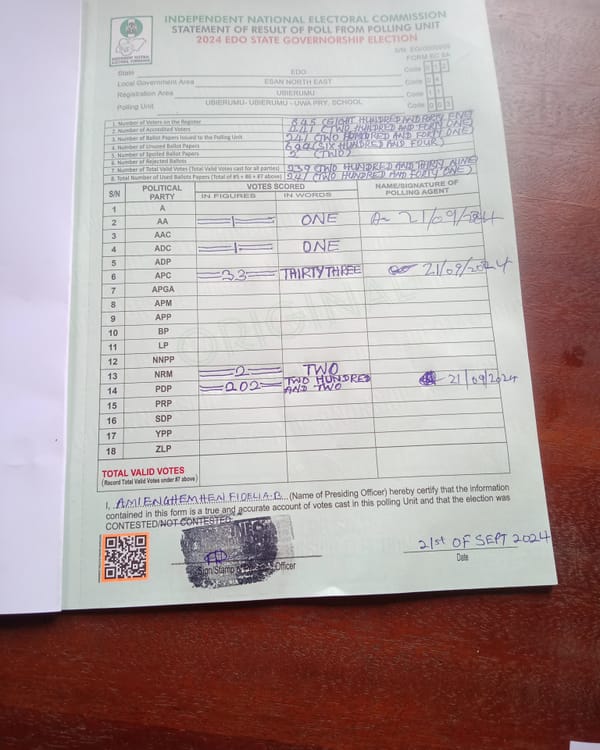 INDEPENDENT NATIONAL ELECTORAL COMMISSION
STATEMENT OF RESULT OF POLL FROM POLLING UNIT
2024 EDO STATE GOVERNORSHIP ELECTION
FORM EC 8A
State EDO Code 1 2
Local Government Area ESAN NORTH EAST Code
Registration Area UBIERUMU Code
Polling Unit UBIERUMU- UBIERUMU - UWA PRY. SCHOOL Code
1. Number of Voters on the Register 845 (EIGHT HUNDRED AND FORTY FIVE)
2. Number of Accredited Voters 241 (TWO HUNDRED AND FORTY ONE)
3. Number of Ballot Papers Issued to the Polling Unit (TWO HUNDRED AND FORTY ONE)
4. Number of Unused Ballot Papers (SIX HUNDRED AND FOUR)
5. Number of Spoiled Ballot Papers 2 (TWO)
6. Number of Rejected Ballots
7. Number of Total Valid Votes (Total Valid Votes cast for all parties) 239 (TWO HUNDRED AND THIRTY NINE)
8. Total Number of Used Ballots Papers (Total of #5 + #6 + #7 above) 241 (TWO HUNDRED AND FORTY ONE)
S/N POLITICAL PARTY VOTES SCORED NAME/SIGNATURE OF POLLING AGENT
IN FIGURES IN WORDS
1 A
2 AA 1 ONE 21/09/2024
3 AAC
4 ADC 1 ONE
5 ADP
6 APC 33 THIRTY THREE 21/09/2024
7 APGA
8 APM
9 APP
10 BP
11 LP
12 NNPP
13 NRM 2 TWO
14 PDP 202 TWO HUNDRED AND TWO 21/09/2024
15 PRP
16 SDP
17 YPP
18 ZLP
TOTAL VALID VOTES
(Record Total Valid Votes under #7 above)
I, AMIENGHEMHEN FIDELIA-B (Name of Presiding Officer) hereby certify that the information
contained in this form is a true and accurate account of votes cast in this polling Unit and that the election was
CONTESTED/NOT CONTESTED
21st OF SEPT 2024
Sign/Stamp Officer Date